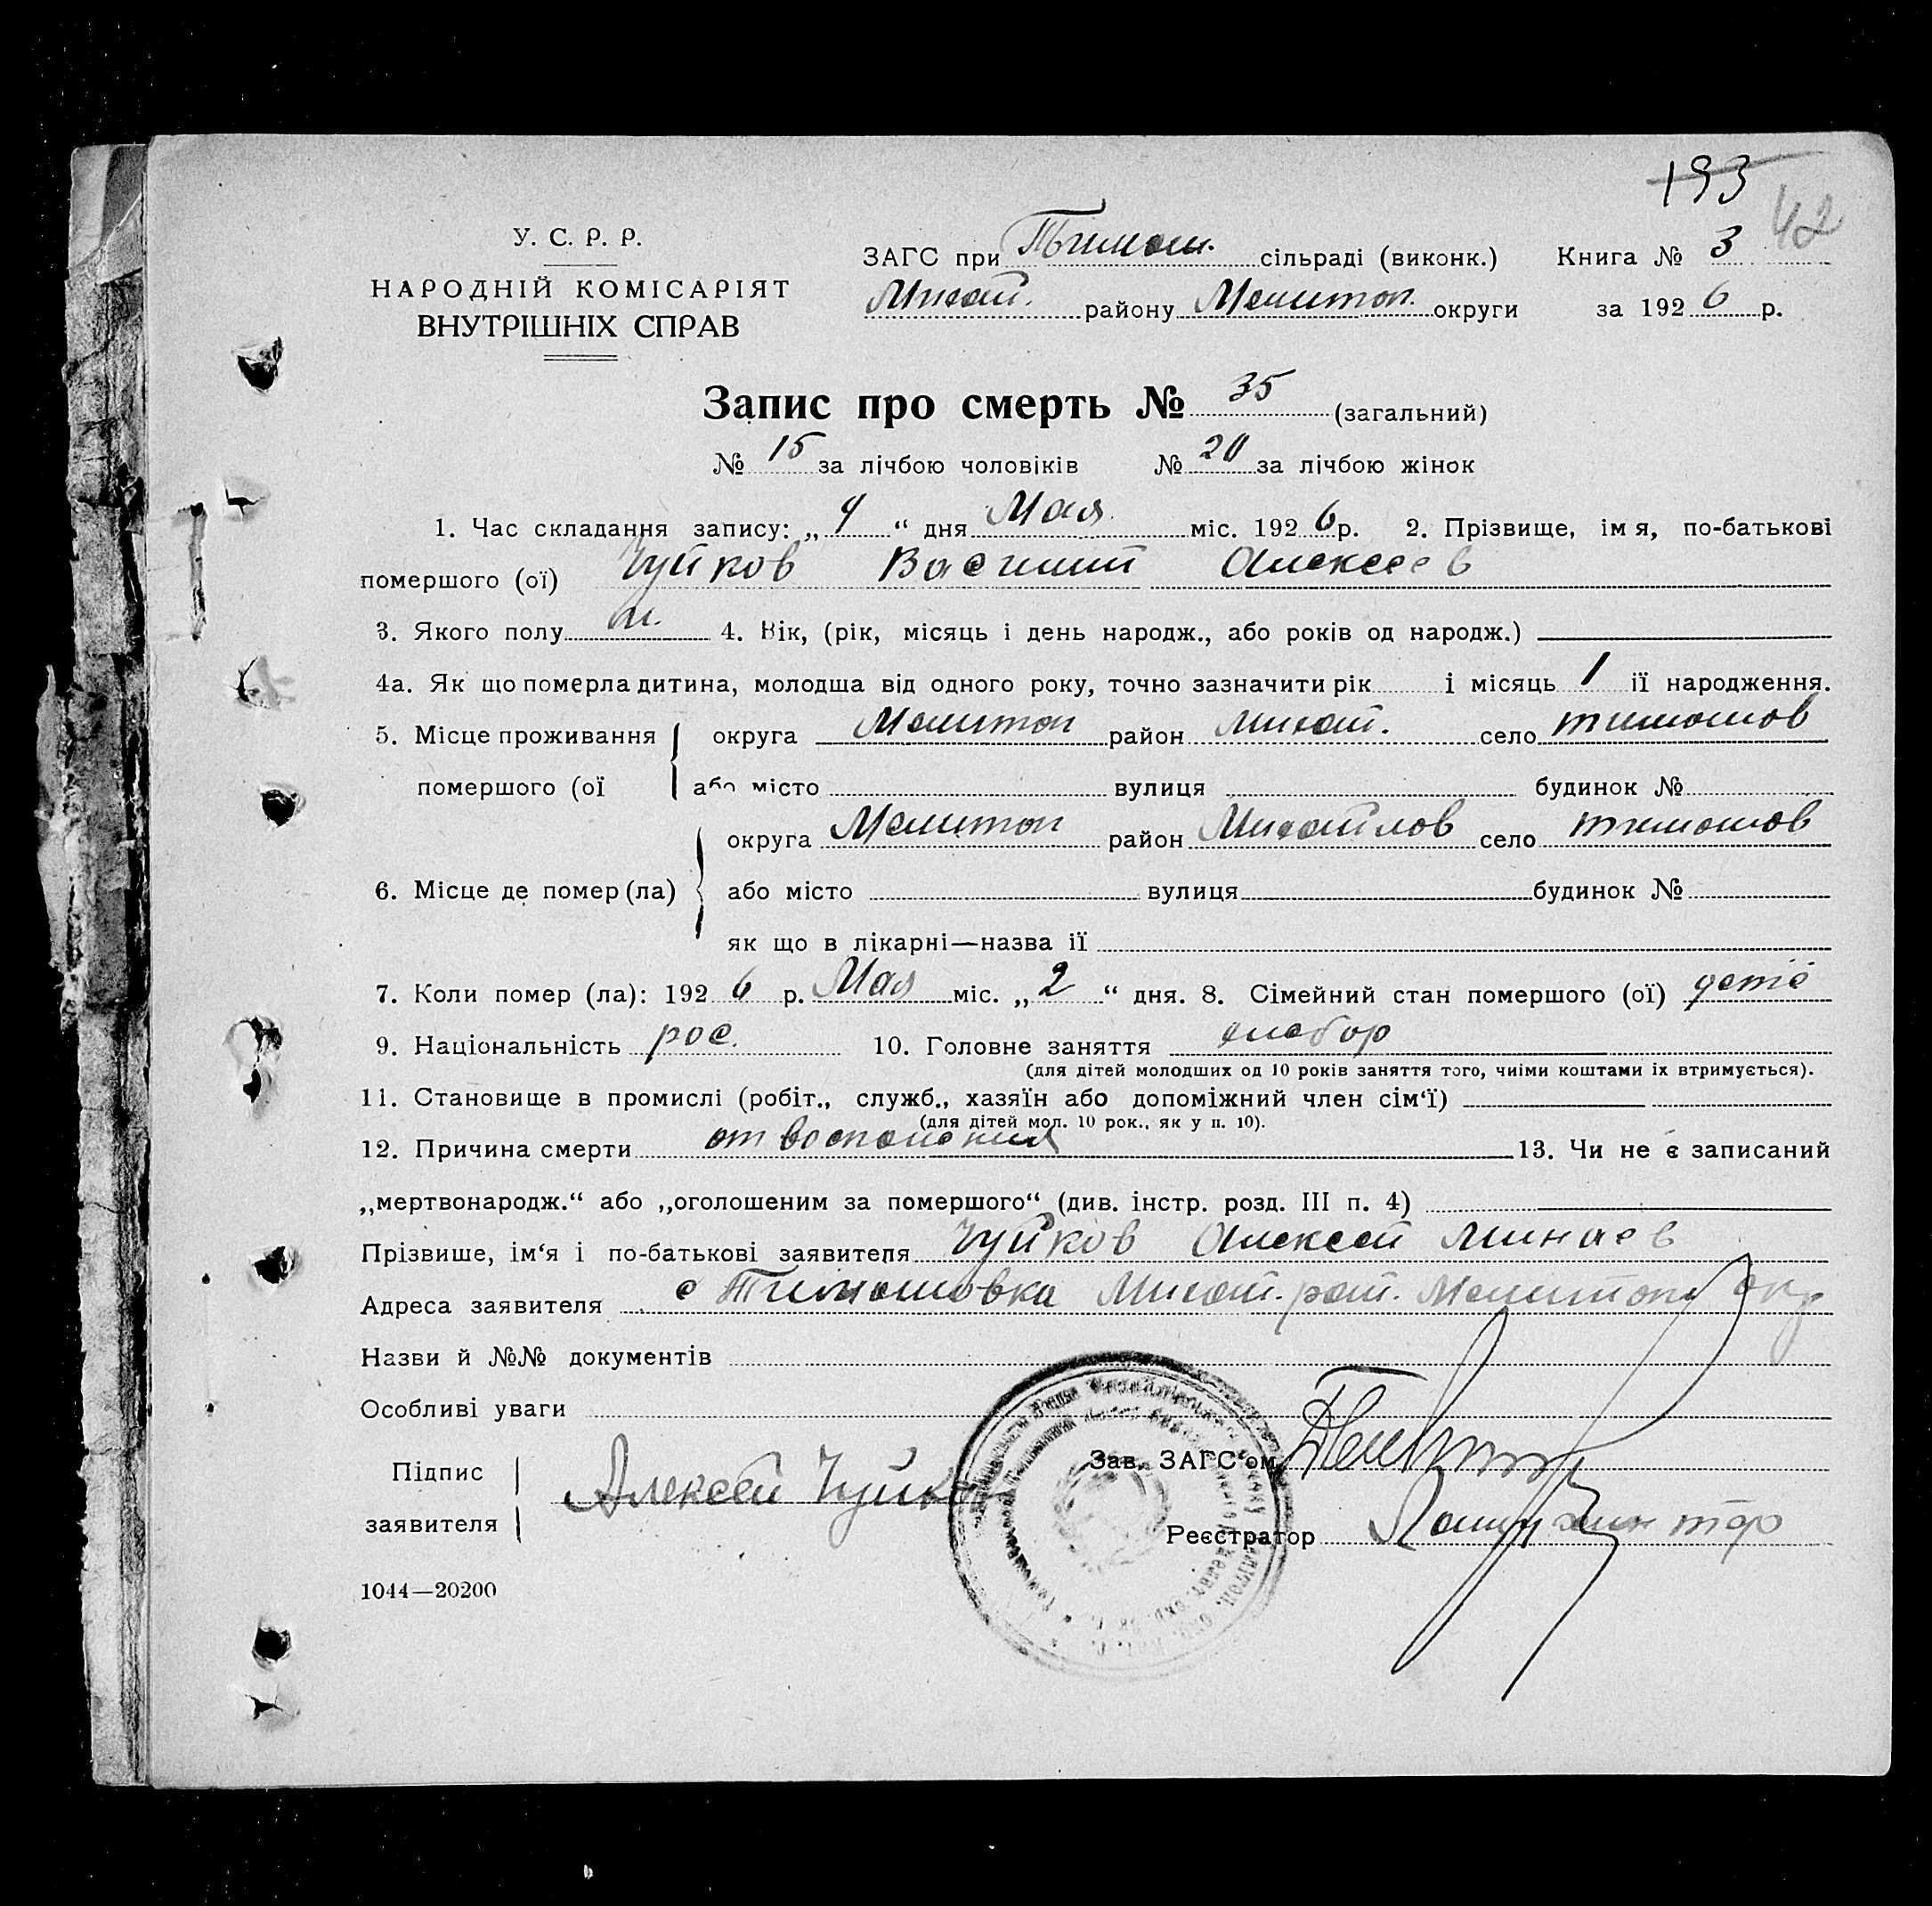 193
42
У. С. Р. Р.
НАРОДНІЙ КОМІСАРІЯТ
ВНУТРІШНІХ СПРАВ
ЗАГС при Тимош. сільраді (виконк.) Книга № 3
Михай. району Мелитоп. округи за 1926 р.
Запис про смерть № 35 (загальний)
№ 15 за лічбою чоловіків № 20 за лічбою жінок
1. Час складання запису: „4“ дня Мая міс. 1926 р. 2. Прізвище, імя, по-батькові
помершого (ої) Чуйков Василий Алексеев
3. Якого полу м. 4. Вік, (рік, місяць і день народж., або років од народж.)
4а. Як що померла дитина, молодша від одного року, точно зазначити рік і місяць 1 ії народження.
5. Місце проживання округа Мелитоп район Михай. село тимошов
помершого (ої або місто вулиця будинок №
округа Мелитоп район Михайлов село тимошов
6. Місце де помер (ла) або місто вулиця будинок №
як що в лікарні—назва ії
7. Коли помер (ла): 1926 р. Мая міс. „2“ дня. 8. Сімейний стан помершого (ої)
9. Національність рос. 10. Головне заняття хлебор
(для дітей молодших од 10 років заняття того, чиїми коштами їх втримується).
11. Становище в промислі (робіт., служб., хазяїн або допоміжний член сім‘ї)
(для дітей мол. 10 рок., як у п. 10).
12. Причина смерти от воспаления 13. Чи не є записаний
„мертвонародж.“ або „оголошеним за помершого“ (див. інстр. розд. III п. 4)
Прізвише, ім‘я і по-батькові заявителя Чуйков Алексей Минаев
Адреса заявителя с Тимошовка Михай. рай. Мелитоп окр
Назви й №№ документів
Особливі уваги
Підпис
заявителя Алексей Чуйков
Зав. ЗАГС‘ом
Реєстратор
1044—20200